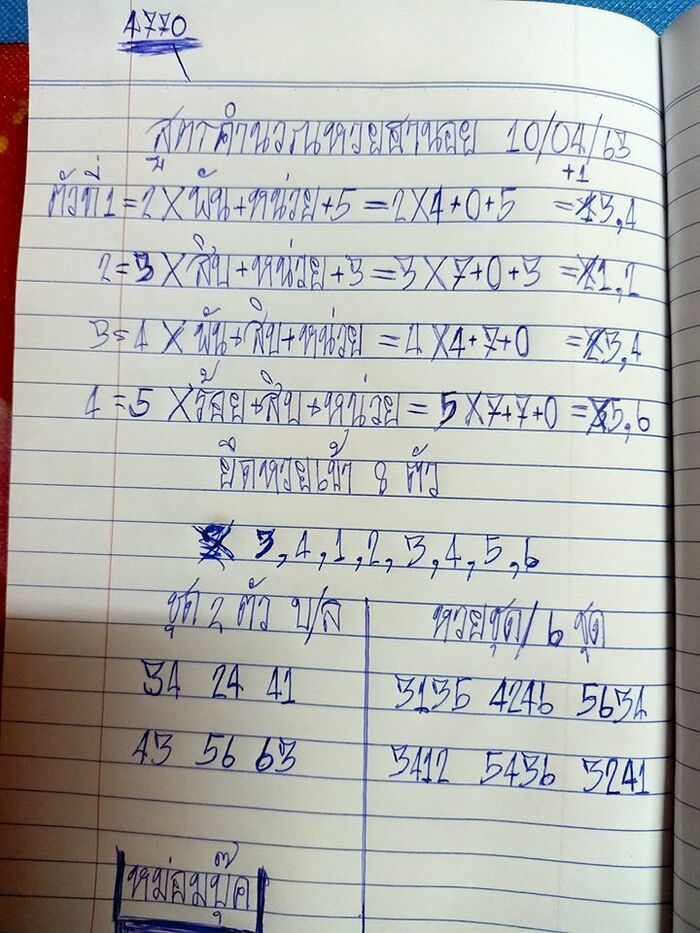 4770
สูตรคำนวณหวยฮานอย 10/04/63
+1
ตัวที่1 = 2 X พัน+หน่วย+5 = 2X4+0+5 = 13,4
2 = 3 X สิบ+หน่วย+3 = 3X7+0+3 = 21,2
3 = 4 X พัน+สิบ+หน่วย = 4X4+7+0 = 23,4
4 = 5 X ร้อย+สิบ+หน่วย = 5X7+7+0 = 5,6
ยึดหวยเข้า 8 ตัว
3,4,1,2,3,4,5,6
ชุด 2 ตัว บ/ล
34 24 41
43 56 63
หวยชุด/ 6 ชุด
3135 4246 5634
3412 5436 3241
หม่อมบุ๊ค